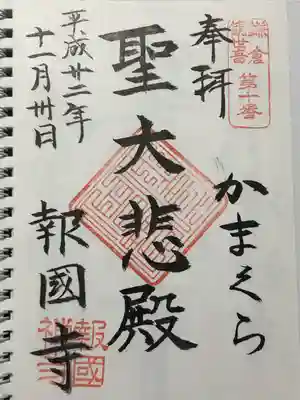 奉拝
鎌倉
第十番
かまくら
聖大悲殿
平成廿二年
十一月卅日
報國寺
報國